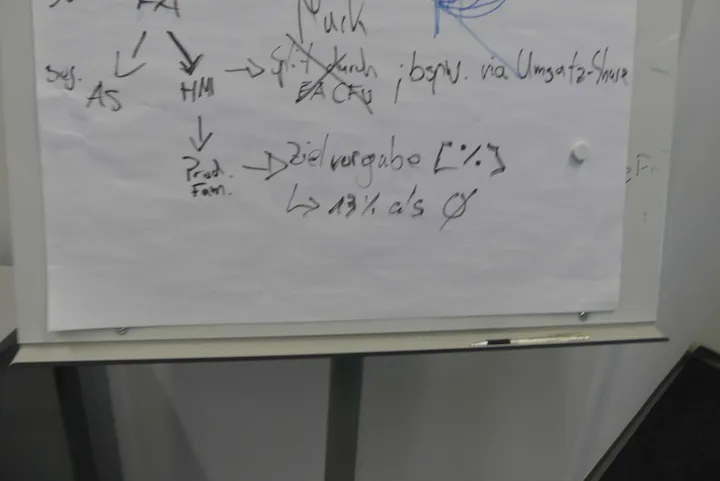 Seg.
AS
HM → Split durch EA CFU ; bspw. via Umsatz-Share
Prod. Fam. → Zielvorgabe [%]
↳ 13% als Ø